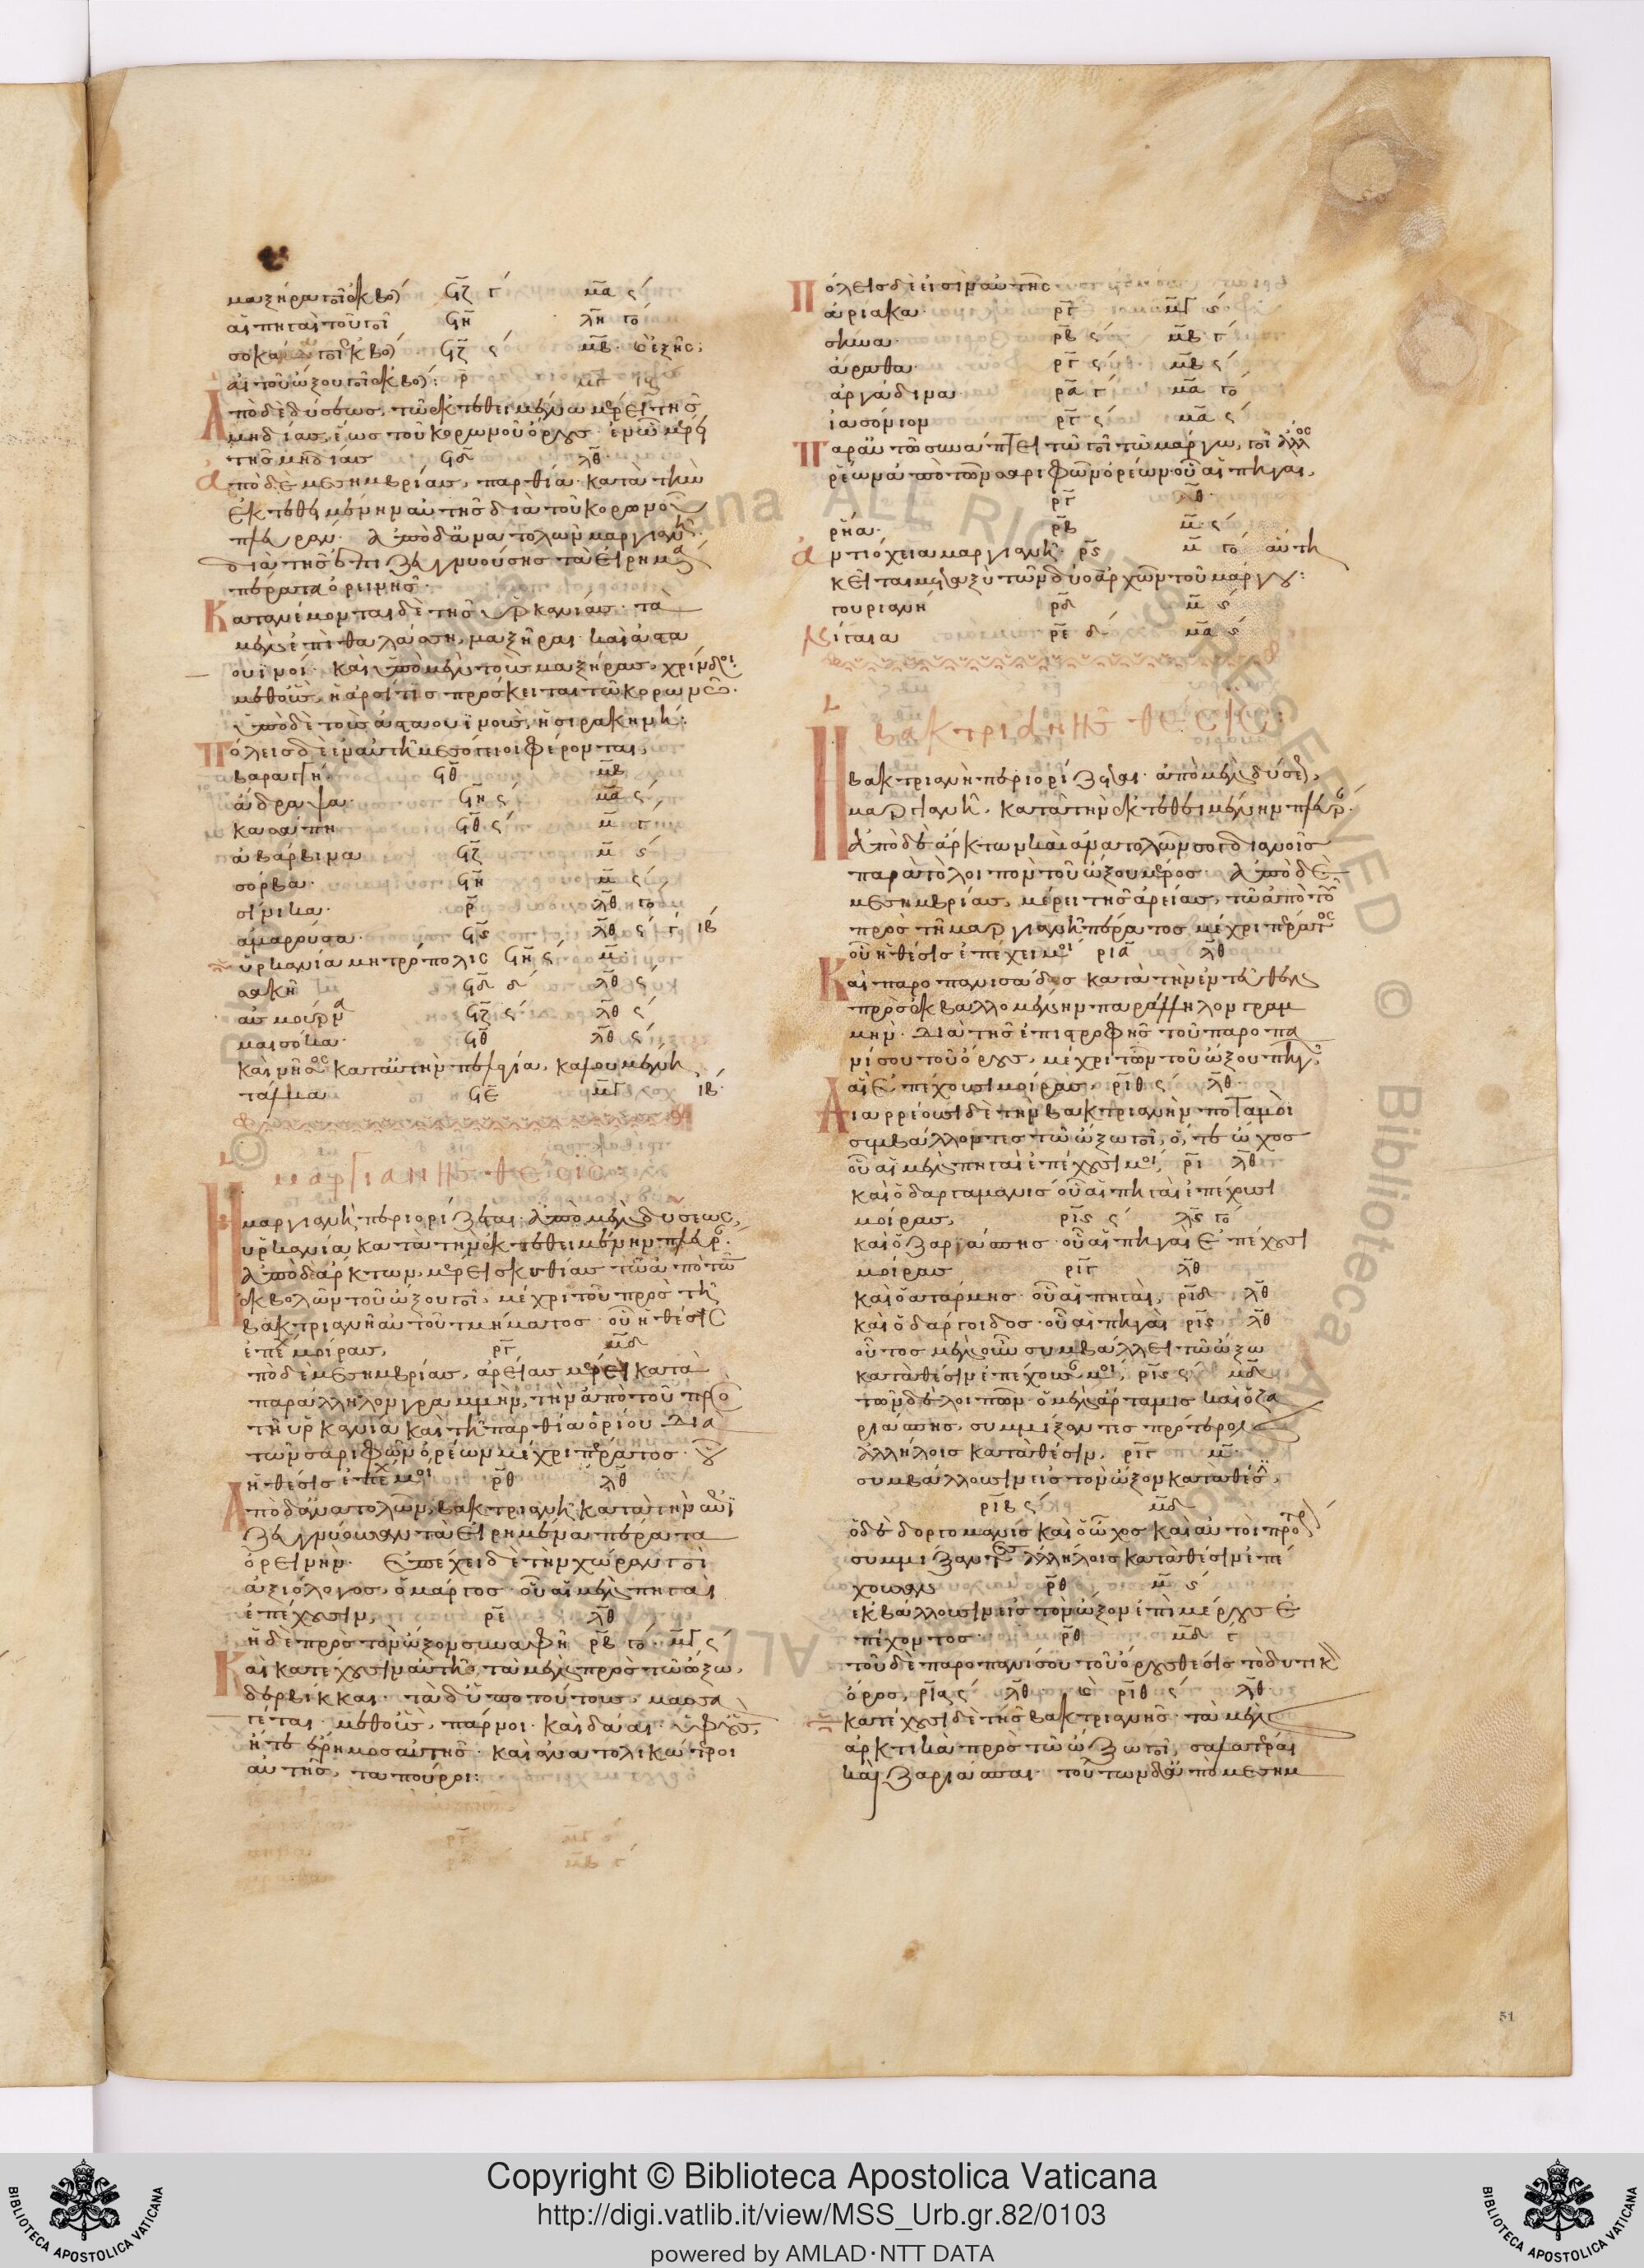 μαξήρα ποτ ἐκβολ ϟζ γ μα ς
αἱ πηγαὶ τοῦ ποτ ϟη λη γο
σοκάνδα ποτ ἐκβολ ϟζ ς μβ
αἱ τοῦ ὤξου ποτ ἐκβολ ρ
ἀπὸ δὲ δύσεως τῶ ἐκτεθειμένω μέρει τῆς
μηδίας ἕως τοῦ κορωνοῦ ὄρους
τῆς μηδίας ϟδ λθ
ἀπὸ δὲ μεσημβρίας παρθία κατὰ τὴν
ἐκτεθειμένην αὐτῆς διὰ τοῦ κορωνοῦ
πλευράν ἀπὸ δὲ ἀνατολῶν μαργιανῆ
διὰ τῆς ἐπιζευγνυούσης τὰ εἰρημένα
πέρατα ὀρεινῆς
κατανέμονται δὲ τῆς ὑρκανίας τὰ
μὲν ἐπὶ θαλάσση μαξῆραι καὶ ἀστα
ουινοί καὶ ὑπὸ μὲν τοὺς μαξήρας χρίνδοι
μεθοὓς ἡ ἀρσῖτις πρόσκειται τῶ κορωνῶ
ὑπὸ δὲ τοὺς ἀσταουινοὺς ἡ σιρακηνή
πόλεις δὲ ἐν αὐτῆ μεσόγειοι φέρονται
βαράγγη ϟθ μβ
ἄδραψα ϟη ς μα ς
κασάπη ϟθ ς μ γ
ἀβάρβινα ϟζ μ ς
σόρβα ϟη μ ς
σίνικα ρ λθ γο
ἀμαροῦσα ϟς λθ ς γ ιβ
ὑρκανία μητρόπολις ϟη ς μ
σάκη ϟδ δ λθ ς
ἀσμούρνα ϟζ ς λθ ς
μαισόκα ϟθ λθ ς
καὶ νῆσος κατ αὐτὴν πελαγία καλουμένη
τάλκα ϟε μγ ιβ
μαργιανῆς θέσις
ἡ μαργιανὴ περιορίζεται ἀπὸ μὲν δύσεως
ὑρκανία κατὰ τὴν ἐκτεθειμένην πλευρ
ἀπὸ δ ἄρκτων μέρει σκυθίας τῶ ἀπὸ τῶν
ἐκβολῶν τοῦ ὤξου ποτ μέχρι τοῦ πρὸς τῆ
βακτριανῆ αὐτοῦ τμήματος οὗ ἡ θέσις
ἐπέχ μοίρας ργ μδ
πὸ δὲ μεσημβρίας ἀρείας μέρει κατὰ
παράλληλον γραμμὴν τὴν ἀπὸ τοῦ πρὸς
τῆ ὑρκανία καὶ τῆ παρθία ὁρίου διὰ
τῶν σαρίφων ὀρέων μέχρι πέρατος οὗ
ἡ θέσις ἐπέχ μοι ρθ λθ
ἀπὸ δ ἀνατολῶν βακτριανῆ κατὰ τὴν
ζευγνύουσαν τὰ εἰρημένα πέρατα
ὀρεινήν ἐπέχει δὲ τὴν χώραν ποτ
ἀξιόλογος ὁ μάργος οὗ αἱ μὲν πηγαὶ
ἐπέχουσιν ρε λθ
ἡ δὲ πρὸς τὸν ὦξον συναφὴ ρβ γο μγ ς
καὶ κατέχουσιν αὐτῆς τὰ μὲν πρὸς τῶ ὤξω
δερβίκκαι τὰ δ ὑπὸ τούτους μασσα
γέται μεθοὓς πάρνοι καὶ δάαι ὑφ οὓς
ἥ τε ἔρημος αὐτῆς καὶ ἀνατολικώτεροι
αὐτῆς ταπούροι
πόλεις δὲ εἰσὶν αὐτῆς
ἀριάκα ργ μγ ς
σήνα ρβ ς μβ γ
ἄραθα ργ ς μβ ς
ἀργάδινα ρα γ μα γο
ἰασόνιον ργ ς μα ς
παρ ἃν συνάπτει τῶ ποτ τῶ μάργω ποτ ἄλλος
ῥέων ἀπὸ τῶν σαρίφων ὀρέων οὗ αἱ πηγαὶ
ργ λθ
ῥήα ρβ μ ς
ἀντιόχεια μαργιανή ρς μ γο αὕτη
κεῖται μεταξὺ τῶν δύο ἀρχῶν τοῦ μάργου
γουριανή ρδ μ ς
νίγαια ρε δ μα ς
βακτριανῆς θέσις
ἡ βακτριανὴ περιορίζεται ἀπὸ μὲν δύσεως
μαργιανῆ κατὰ τὴν ἐκτεθειμένην πλευρ
ἀπὸ δὲ ἄρκτων καὶ ἀνατολῶν σογδιανοῖς
παρὰ τὸ λοιπὸν τοῦ ὤξου μέρος ἀπὸ δὲ
μεσημβρίας μέρει τῆς ἀρείας τῶ ἀπὸ τοῦ
πρὸς τῆ μαργιανῆ πέρατος μέχρι πέρατος
οὗ ἡ θέσις ἐπέχει μοι ρια λθ
καὶ παροπανισάδος κατὰ τὴν ἐντεῦθεν
πρὸς ἐκβαλλομένην παράλληλον γραμ
μὴν διὰ τῆς ἐπιστροφῆς τοῦ παροπα
νίσου τοῦ ὄρους μέχρι τῶν τοῦ ὤξου πηγῶν
αἳ ἐπέχουσι μοίρας ριθ ς λθ
διαρρέουσι δὲ τὴν βακτριανὴν ποταμοὶ
συμβάλλοντες τῶ ὤξω ποτ ὅ τε ὦχος
οὗ αἱ μὲν πηγαὶ ἐπέχουσι μοι ρι λθ
καὶ ὁ δαργαμανις οὗ αἱ πηγαὶ ἐπέχουσι
μοίρας ρις ς λς γο
καὶ ὁ ζαριάσπης οὗ αἱ πηγαὶ ἐπέχουσι
μοίρας ριγ λθ
καὶ ὁ ἀτάρμης οὗ αἱ πηγαὶ ριδ λθ
καὶ ὁ δάργοιδος οὗ αἱ πηγαὶ ρις λθ
οὗτος μὲν οὖν συμβάλλει τῶ ὤξω
κατὰ θέσιν ἐπέχουσ μοι ρις ς μδ
τῶν δὲ λοιπῶν ὁ μὲν ἀρταμις καὶ ὁ ζα
ριάσπης συμμίξαντες πρότερον
ἀλλήλοις κατὰ θέσιν ριγ μ
συμβάλλουσιν εἰς τὸν ὦξον κατὰ θέσιν
ριβ ς μδ
ὁ δὲ δοργομανις καὶ ὁ ὦχος καὶ αὐτοὶ πρότερ
συμμίξαντες ἀλλήλοις κατὰ θέσιν ἐπέ
χουσαν ρθ μ ς
ἐκβάλλουσιν εἰς τὸν ὦξον ἐπὶ μέρους ἐ
πέχοντος ρθ μδ γ
τοῦ δὲ παροπανίσου τοῦ ὄρους θέσις τὸ δυτικ
ὄρος ρια ς λθ ριθ ς λθ
κατέχουσι δὲ τῆς βακτριανῆς τὰ μὲν
ἀρκτικὰ πρὸς τῶ ὤξω ποτ σαλατάραι
καὶ ζαριάσπαι τούτων δ ἀπὸ μεσημ
51
Copyright © Biblioteca Apostolica Vaticana
http://digi.vatlib.it/view/MSS_Urb.gr.82/0103
powered by AMLAD·NTT DATA
BIBLIOTECA APOSTOLICA VATICANA
BIBLIOTECA APOSTOLICA VATICANA